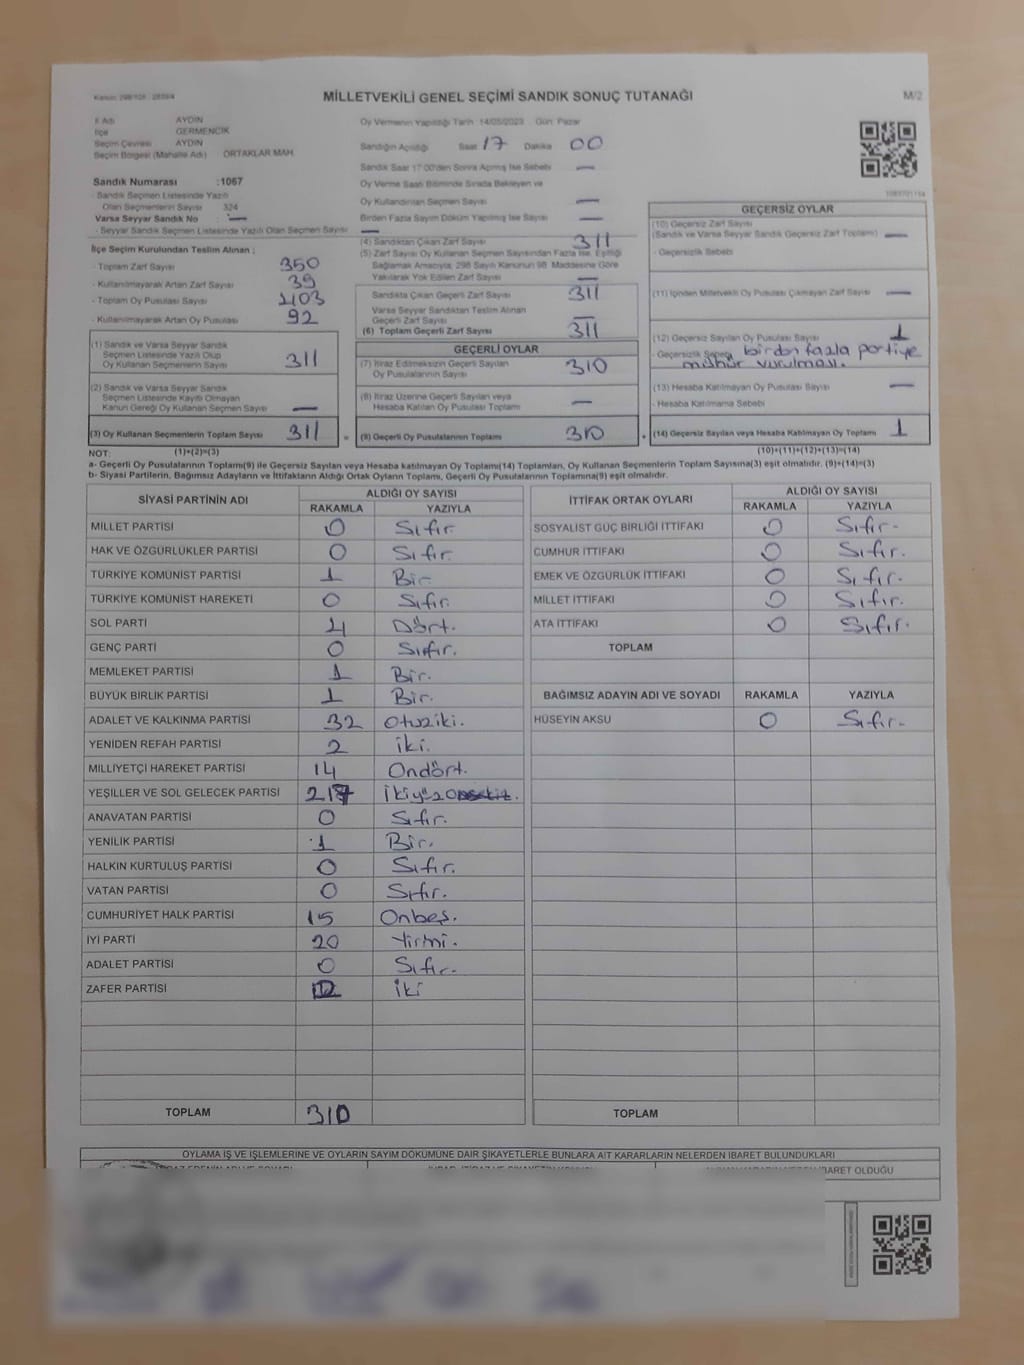 MİLLETVEKİLİ GENEL SEÇİMİ SANDIK SONUÇ TUTANAĞI
M/2
İl Adı AYDIN
İlçe GERMENCİK
Seçim Çevresi AYDIN
Seçim Bölgesi (Mahalle Adı) ORTAKLAR MAH.
Sandık Numarası :1067
- Sandık Seçmen Listesinde Yazılı
Olan Seçmenlerin Sayısı 324
Varsa Seyyar Sandık No : —
- Seyyar Sandık Seçmen Listesinde Yazılı Olan Seçmen Sayısı —
İlçe Seçim Kurulundan Teslim Alınan ;
- Toplam Zarf Sayısı 350
- Kullanılmayarak Artan Zarf Sayısı 39
- Toplam Oy Pusulası Sayısı 403
- Kullanılmayarak Artan Oy Pusulası 92
(1) Sandık ve Varsa Seyyar Sandık
Seçmen Listesinde Yazılı Olup
Oy Kullanan Seçmenlerin Sayısı 311
(2) Sandık ve Varsa Seyyar Sandık
Seçmen Listesinde Kayıtlı Olmayan
Kanun Gereği Oy Kullanan Seçmen Sayısı —
(3) Oy Kullanan Seçmenlerin Toplam Sayısı 311
Oy Vermenin Yapıldığı Tarih 14/05/2023 Gün: Pazar
Sandığın Açıldığı Saat 17 Dakika 00
Sandık Saat 17:00'den Sonra Açılmış İse Sebebi —
Oy Verme Saati Bitiminde Sırada Bekleyen ve
Oy Kullandırılan Seçmen Sayısı —
Birden Fazla Sayım Döküm Yapılmış İse Sayısı —
(4) Sandıktan Çıkan Zarf Sayısı 311
(5) Zarf Sayısı Oy Kullanan Seçmen Sayısından Fazla İse, Eşitliği
Sağlamak Amacıyla, 298 Sayılı Kanunun 98. Maddesine Göre
Yakılarak Yok Edilen Zarf Sayısı —
Sandıkta Çıkan Geçerli Zarf Sayısı 311
Varsa Seyyar Sandıktan Teslim Alınan
Geçerli Zarf Sayısı —
(6) Toplam Geçerli Zarf Sayısı 311
GEÇERLİ OYLAR
(7) İtiraz Edilmeksizin Geçerli Sayılan
Oy Pusulalarının Sayısı 310
(8) İtiraz Üzerine Geçerli Sayılan veya
Hesaba Katılan Oy Pusulası Toplamı —
(9) Geçerli Oy Pusulalarının Toplamı 310
GEÇERSİZ OYLAR
(10) Geçersiz Zarf Sayısı
(Sandık ve Varsa Seyyar Sandık Geçersiz Zarf Toplamı) —
- Geçersizlik Sebebi
(11) İçinden Milletvekili Oy Pusulası Çıkmayan Zarf Sayısı —
(12) Geçersiz Sayılan Oy Pusulası Sayısı 1
- Geçersizlik Sebebi birden fazla partiye
mühür vurulması.
(13) Hesaba Katılmayan Oy Pusulası Sayısı —
- Hesaba Katılmama Sebebi
(14) Geçersiz Sayılan veya Hesaba Katılmayan Oy Toplamı 1
NOT: (1)+(2)=(3) (10)+(11)+(12)+(13)=(14)
a- Geçerli Oy Pusulalarının Toplamı(9) ile Geçersiz Sayılan veya Hesaba katılmayan Oy Toplamı(14) Toplamları, Oy Kullanan Seçmenlerin Toplam Sayısına(3) eşit olmalıdır. (9)+(14)=(3)
b- Siyasi Partilerin, Bağımsız Adayların ve İttifakların Aldığı Oyların Toplamı, Geçerli Oy Pusulalarının Toplamına(9) eşit olmalıdır.
SİYASİ PARTİNİN ADI ALDIĞI OY SAYISI
RAKAMLA YAZIYLA
MİLLET PARTİSİ 0 Sıfır
HAK VE ÖZGÜRLÜKLER PARTİSİ 0 Sıfır.
TÜRKİYE KOMÜNİST PARTİSİ 1 Bir
TÜRKİYE KOMÜNİST HAREKETİ 0 Sıfır.
SOL PARTİ 4 Dört.
GENÇ PARTİ 0 Sıfır.
MEMLEKET PARTİSİ 1 Bir.
BÜYÜK BİRLİK PARTİSİ 1 Bir.
ADALET VE KALKINMA PARTİSİ 32 Otuziki.
YENİDEN REFAH PARTİSİ 2 İki.
MİLLİYETÇİ HAREKET PARTİSİ 14 Ondört.
YEŞİLLER VE SOL GELECEK PARTİSİ 217
ANAVATAN PARTİSİ 0 Sıfır.
YENİLİK PARTİSİ 1 Bir.
HALKIN KURTULUŞ PARTİSİ 0 Sıfır.
VATAN PARTİSİ 0 Sıfır.
CUMHURİYET HALK PARTİSİ 15 Onbeş.
İYİ PARTİ 20 Yirmi.
ADALET PARTİSİ 0 Sıfır.
ZAFER PARTİSİ 2 İki
TOPLAM 310
İTTİFAK ORTAK OYLARI ALDIĞI OY SAYISI
RAKAMLA YAZIYLA
SOSYALİST GÜÇ BİRLİĞİ İTTİFAKI 0 Sıfır.
CUMHUR İTTİFAKI 0 Sıfır.
EMEK VE ÖZGÜRLÜK İTTİFAKI 0 Sıfır.
MİLLET İTTİFAKI 0 Sıfır.
ATA İTTİFAKI 0 Sıfır.
TOPLAM
BAĞIMSIZ ADAYIN ADI VE SOYADI RAKAMLA YAZIYLA
HÜSEYİN AKSU 0 Sıfır.
TOPLAM
OYLAMA İŞ VE İŞLEMLERİNE VE OYLARIN SAYIM DÖKÜMÜNE DAİR ŞİKAYETLERLE BUNLARA AİT KARARLARIN NELERDEN İBARET BULUNDUKLARI